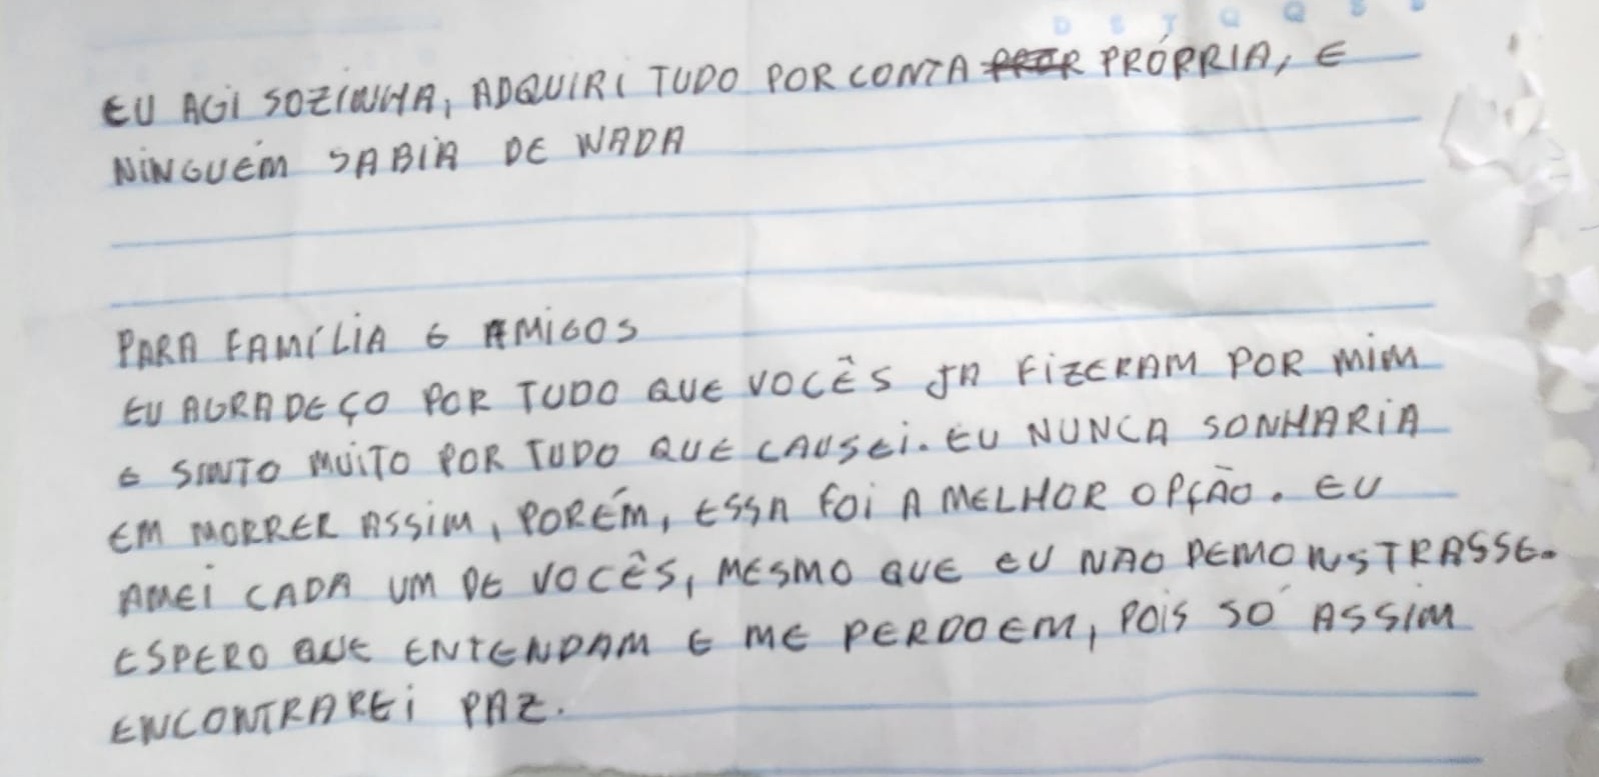 D S T Q Q S
EU AGI SOZINHA, ADQUIRI TUDO POR CONTA PRÓPRIA, E
NINGUÉM SABIA DE NADA
PARA FAMÍLIA E AMIGOS
EU AGRADEÇO POR TUDO QUE VOCÊS JA FIZERAM POR MIM
E SINTO MUITO POR TUDO QUE CAUSEI. EU NUNCA SONHARIA
EM MORRER ASSIM, PORÉM, ESSA FOI A MELHOR OPÇÃO. EU
AMEI CADA UM DE VOCÊS, MESMO QUE EU NAO DEMONSTRASSE.
ESPERO QUE ENTENDAM E ME PERDOEM, POIS SÓ ASSIM
ENCONTRAREI PAZ.